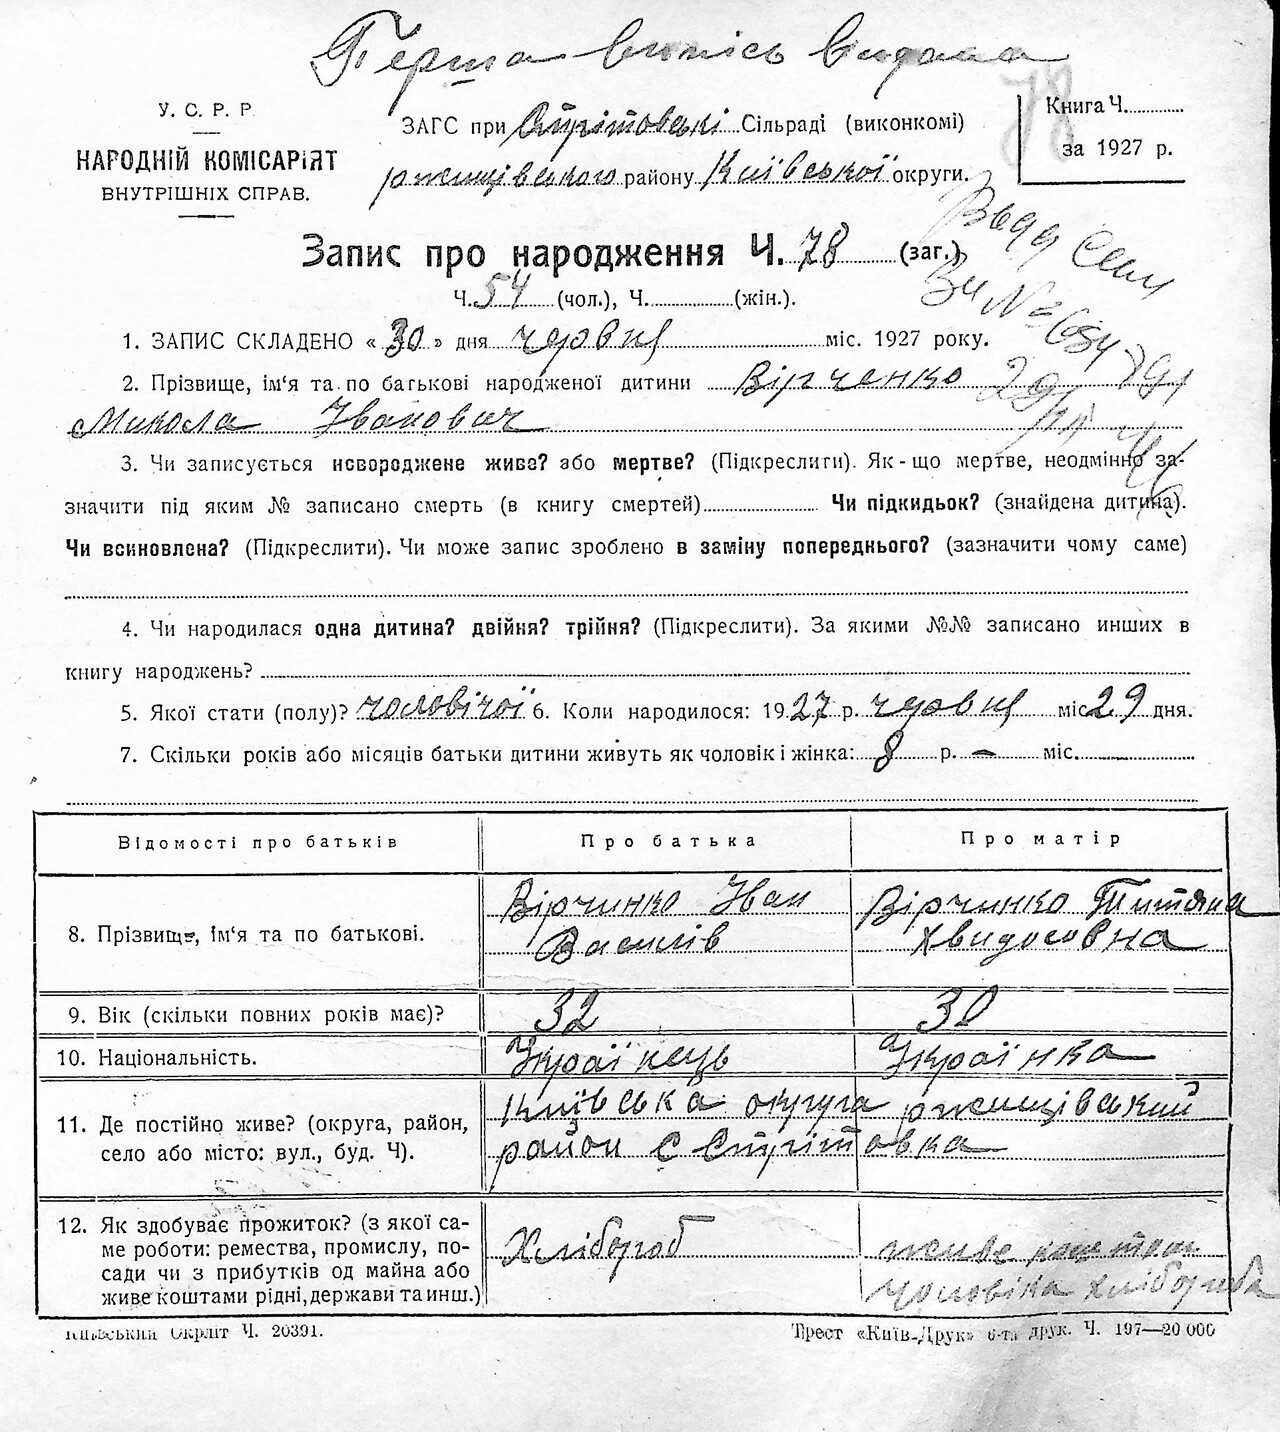 Перша випись видана
У. С. Р. Р.
НАРОДНІЙ КОМІСАРІЯТ
ВНУТРІШНІХ СПРАВ.
ЗАГС при Стрітовські Сільраді (виконкомі)
ржищівського району Київської округи.
Книга Ч.
78
за 1927 р.
Запис про народження Ч. 78 (заг.)
Ч. 54 (чол.), Ч. (жін.).
1. ЗАПИС СКЛАДЕНО « 30 » дня червня міс. 1927 року.
2. Прізвище, ім'я та по батькові народженої дитини Вірченко
Микола Іванович
3. Чи записується новороджене живе? або мертве? (Підкреслити). Як-що мертве, неодмінно за-
значити під яким № записано смерть (в книгу смертей) Чи підкидьок? (знайдена дитина).
Чи всиновлена? (Підкреслити). Чи може запис зроблено в заміну попереднього? (зазначити чому саме)
4. Чи народилася одна дитина? двійня? трійня? (Підкреслити). За якими №№ записано инших в
книгу народжень?
5. Якої стати (полу)? чоловічої 6. Коли народилося: 1927 р. червня міс. 29 дня.
7. Скільки років або місяців батьки дитини живуть як чоловік і жінка: 8 р. — міс.
Відомості про батьків Про батька Про матір
8. Прізвище, ім'я та по батькові. Вірчинко Іван Василів Вірчинко Титяна Хвидосовна
9. Вік (скільки повних років має)? 32 30
10. Національність. Українець Українка
11. Де постійно живе? (округа, район, Київська округа ржищівський
село або місто: вул., буд. Ч). район с Стрітовка
12. Як здобуває прожиток? (з якої са-
ме роботи: ремества, промислу, по- Хлібороб живе коштом
сади чи з прибутків од майна або
живе коштами рідні, держави та инш.) чоловіка хлібороба
Київський Окрліт Ч. 20391. Трест «Київ-Друк» 6-та друк. Ч. 197—20 000